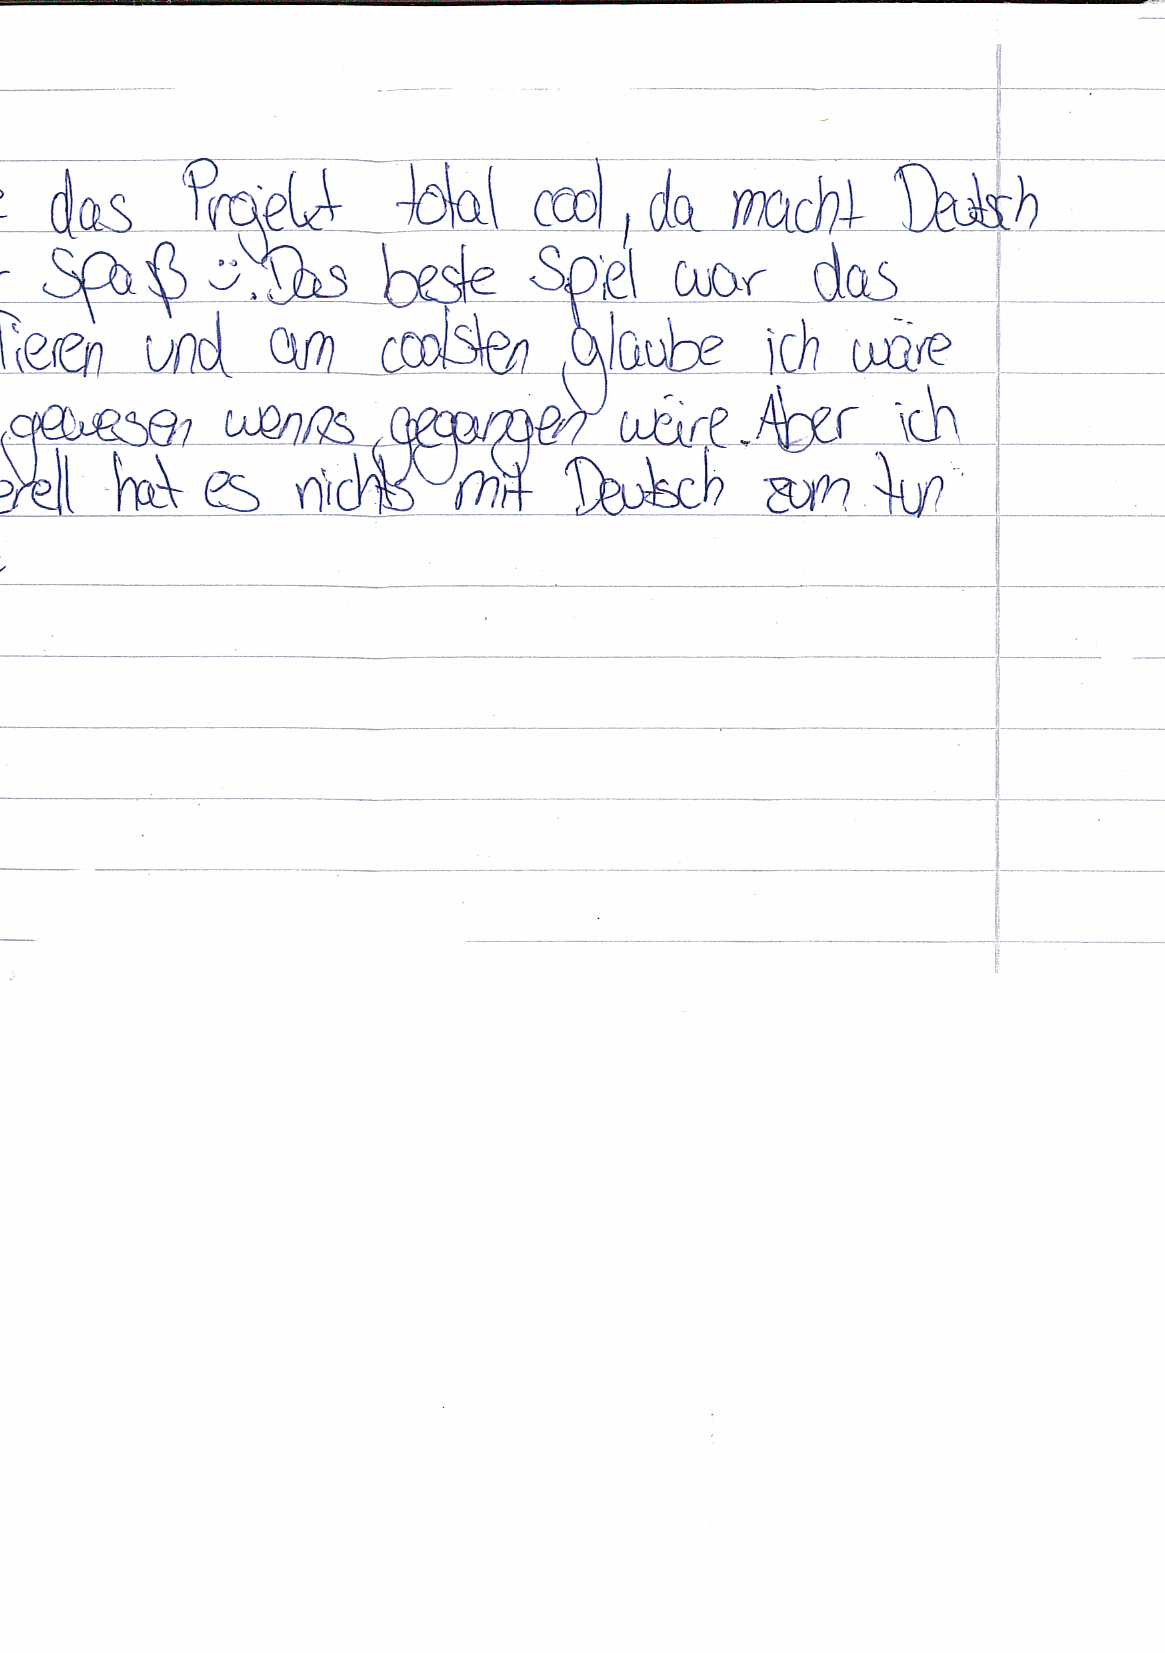 das Projekt total cool, da macht Deutsch
Spaß :). Das beste Spiel war das
Tieren und am coolsten glaube ich wäre
gewesen wenns gegangen wäre. Aber ich
hat es nichts mit Deutsch zum tun